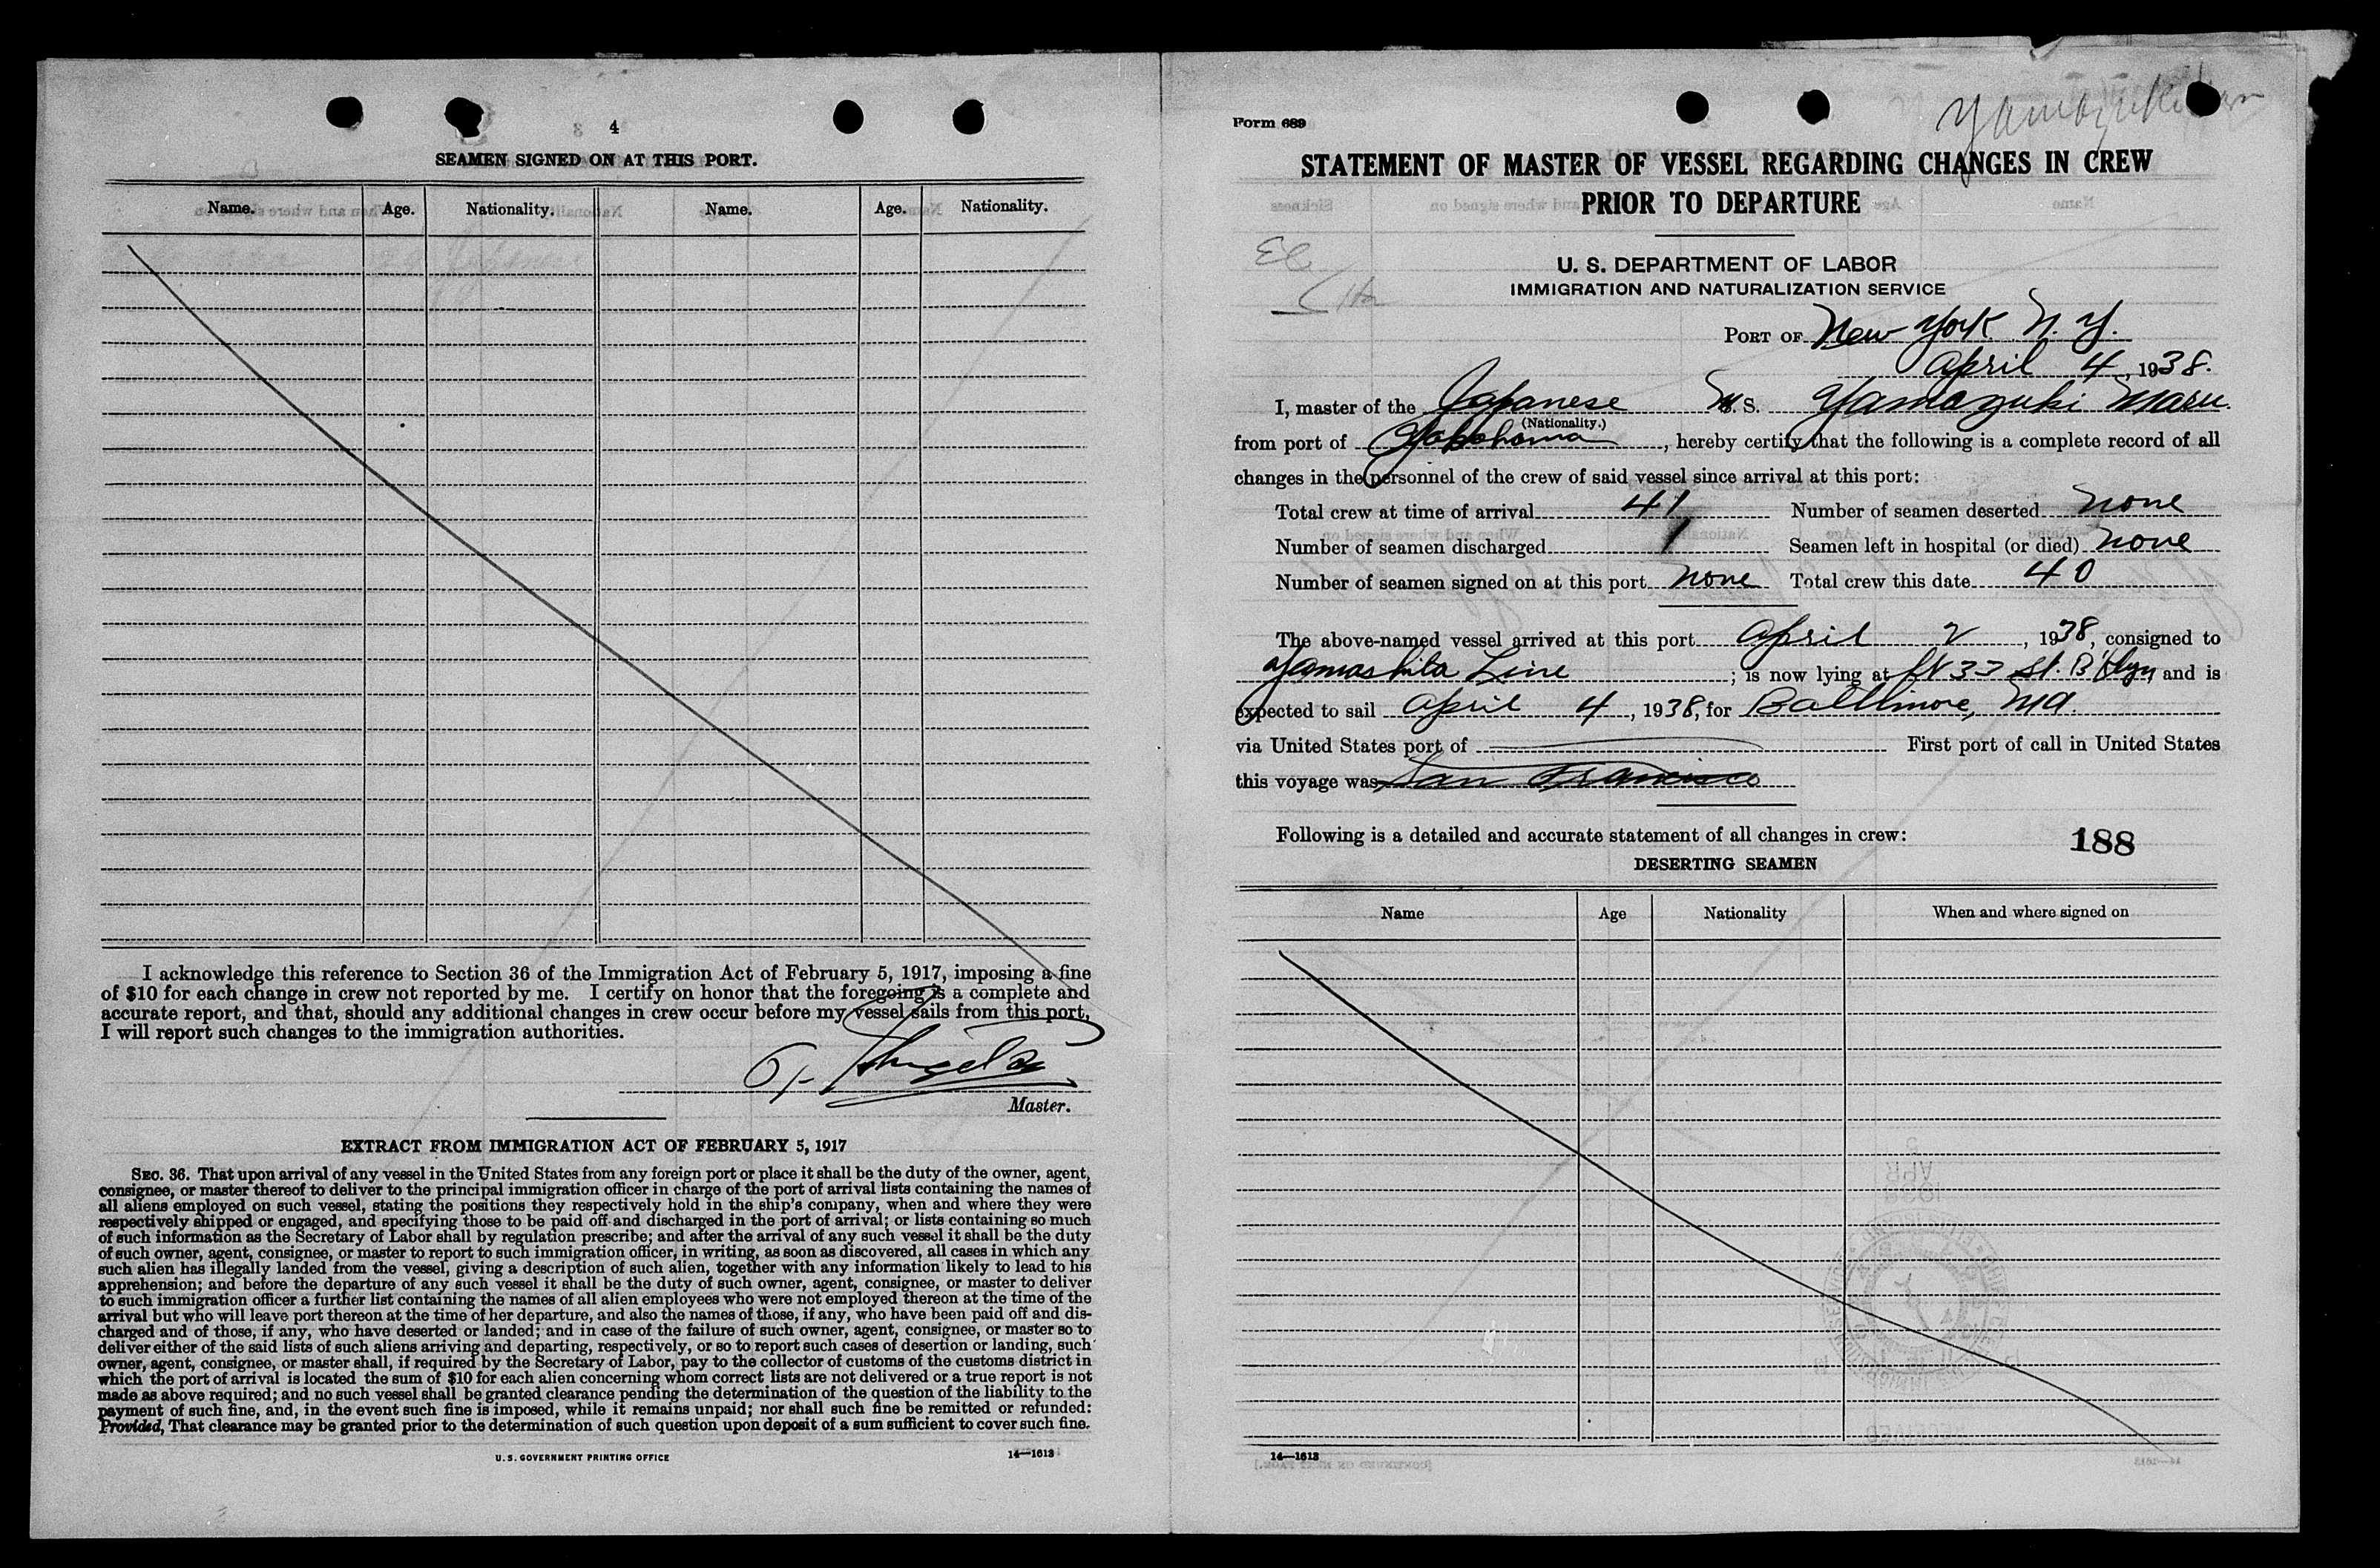 4
SEAMEN SIGNED ON AT THIS PORT.
Name. Age. Nationality. Name. Age. Nationality.
I acknowledge this reference to Section 36 of the Immigration Act of February 5, 1917, imposing a fine
of $10 for each change in crew not reported by me. I certify on honor that the foregoing is a complete and
accurate report, and that, should any additional changes in crew occur before my vessel sails from this port,
I will report such changes to the immigration authorities.
Master.
EXTRACT FROM IMMIGRATION ACT OF FEBRUARY 5, 1917
SEC. 36. That upon arrival of any vessel in the United States from any foreign port or place it shall be the duty of the owner, agent,
consignee, or master thereof to deliver to the principal immigration officer in charge of the port of arrival lists containing the names of
all aliens employed on such vessel, stating the positions they respectively hold in the ship's company, when and where they were
respectively shipped or engaged, and specifying those to be paid off and discharged in the port of arrival; or lists containing so much
of such information as the Secretary of Labor shall by regulation prescribe; and after the arrival of any such vessel it shall be the duty
of such owner, agent, consignee, or master to report to such immigration officer, in writing, as soon as discovered, all cases in which any
such alien has illegally landed from the vessel, giving a description of such alien, together with any information likely to lead to his
apprehension; and before the departure of any such vessel it shall be the duty of such owner, agent, consignee, or master to deliver
to such immigration officer a further list containing the names of all alien employees who were not employed thereon at the time of the
arrival but who will leave port thereon at the time of her departure, and also the names of those, if any, who have been paid off and dis-
charged and of those, if any, who have deserted or landed; and in case of the failure of such owner, agent, consignee, or master so to
deliver either of the said lists of such aliens arriving and departing, respectively, or so to report such cases of desertion or landing, such
owner, agent, consignee, or master shall, if required by the Secretary of Labor, pay to the collector of customs of the customs district in
which the port of arrival is located the sum of $10 for each alien concerning whom correct lists are not delivered or a true report is not
made as above required; and no such vessel shall be granted clearance pending the determination of the question of the liability to the
payment of such fine, and, in the event such fine is imposed, while it remains unpaid; nor shall such fine be remitted or refunded:
Provided, That clearance may be granted prior to the determination of such question upon deposit of a sum sufficient to cover such fine.
U. S. GOVERNMENT PRINTING OFFICE 14—1613
Form 689
STATEMENT OF MASTER OF VESSEL REGARDING CHANGES IN CREW
PRIOR TO DEPARTURE
U. S. DEPARTMENT OF LABOR
IMMIGRATION AND NATURALIZATION SERVICE
PORT OF New York N.Y.
April 4, 1938.
I, master of the Japanese M.S. Yamazuki Maru
(Nationality.)
from port of Yokohama, hereby certify that the following is a complete record of all
changes in the personnel of the crew of said vessel since arrival at this port:
Total crew at time of arrival 41 Number of seamen deserted none
Number of seamen discharged 1 Seamen left in hospital (or died) none
Number of seamen signed on at this port none Total crew this date 40
The above-named vessel arrived at this port April 2, 1938, consigned to
Yamashita Line; is now lying at ft 33 st. B'klyn and is
expected to sail April 4, 1938, for Baltimore, Md.
via United States port of First port of call in United States
this voyage was San Francisco
Following is a detailed and accurate statement of all changes in crew: 188
DESERTING SEAMEN
Name Age Nationality When and where signed on
14—1613